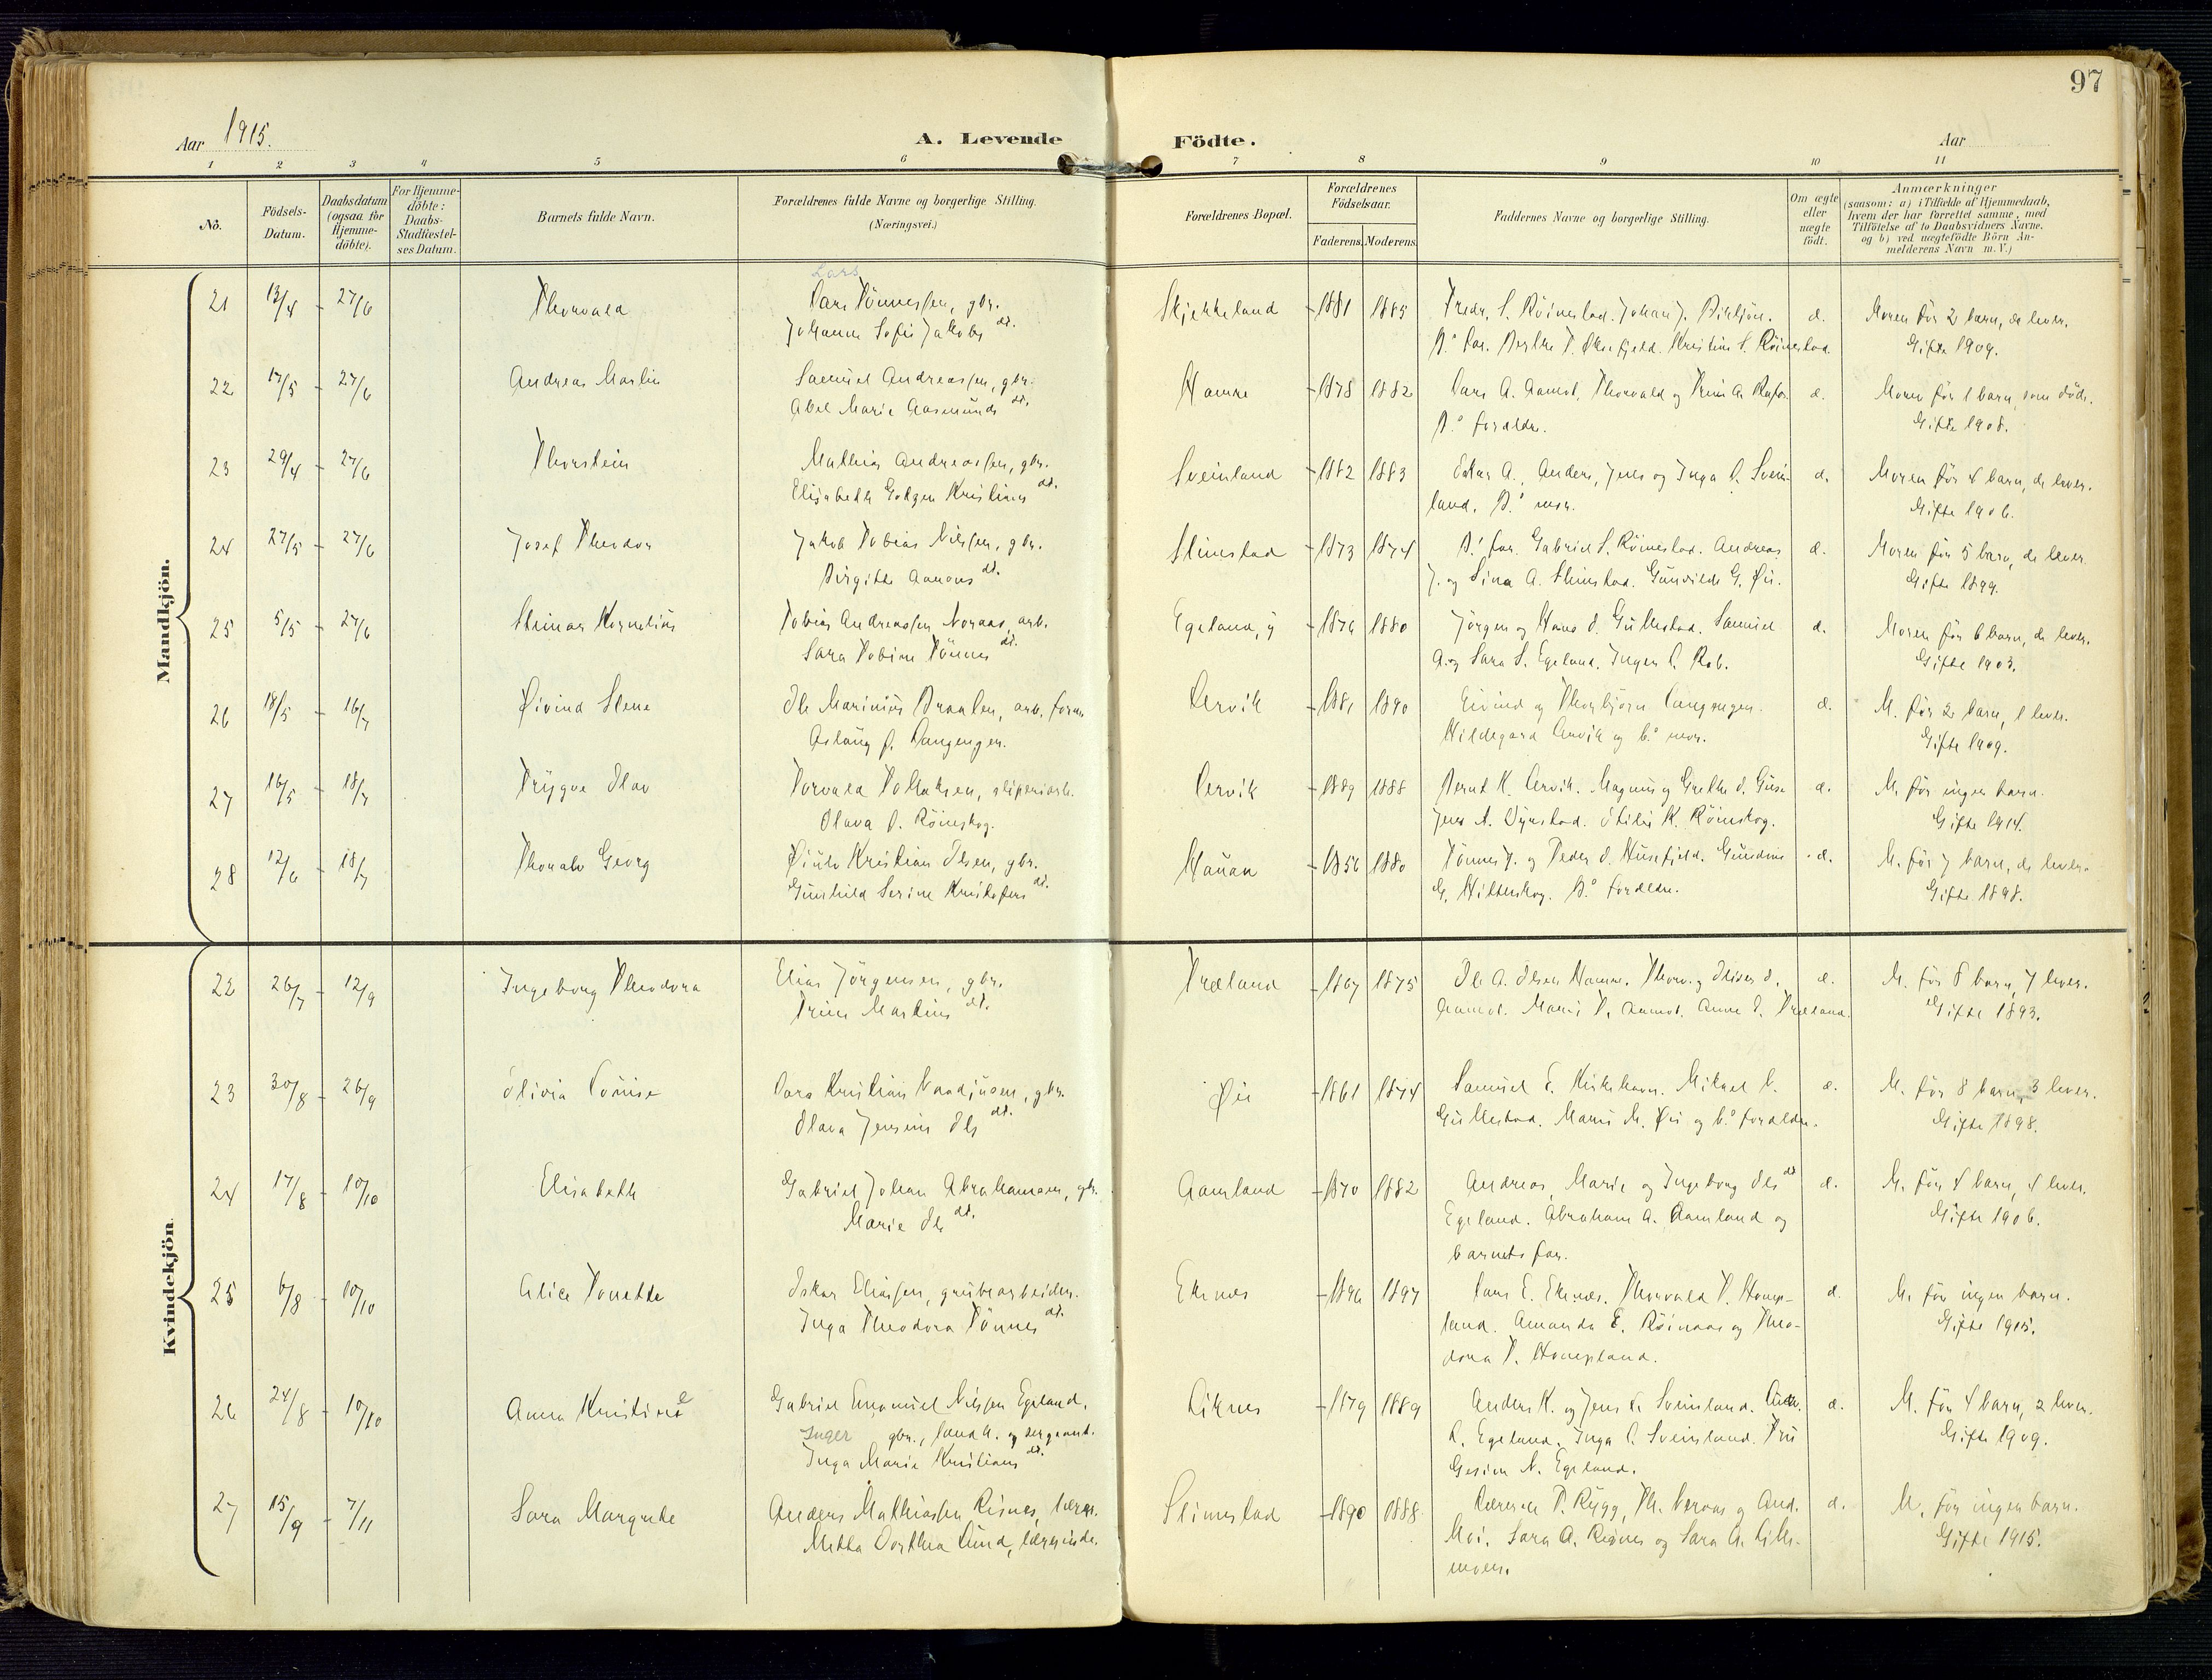 97
Aar 1915.
A. Levende Födte.
Aar
1 2 3 4 5 6 7 8 9 10 11
No.
Födsels-Datum.
Daabsdatum (ogsaa for Hjemmedöbte).
For Hjemmedöbte: Daabs-Stadfæstelses Datum.
Barnets fulde Navn.
Forældrenes fulde Navne og borgerlige Stilling.
(Næringsvei.)
Forældrenes Bopæl.
Forældrenes Födselsaar.
Faderens. Moderens.
Faddernes Navne og borgerlige Stilling.
Om ægte eller uægte födt.
Anmærkninger
(saasom: a) i Tilfælde af Hjemmedaab, hvem der har forrettet samme, med Tilföielse af to Daabsvidners Navne. og b) ved uægtefödte Börn Anmelderens Navn m. V.)
Mandkjön.
Lars
21 13/4 - 27/6 Thorvald Lars Tönnessen, gbr. Skjekkeland - 1881 1885 Fredr. S. Röinestad. Johan J. Birkjön. æ. Moren för 2 barn, de lever.
Johanne Sofie Jakobs dt. B.s far. Kristine S. Röinestad. Gifte 1909.
22 17/5 - 27/6 Andreas Martin Samuel Andreassen, gbr. Hamre - 1878 1882 Lars A. Aamot, Thorvald og Trine A. æ. Moren för 1 barn, som döde.
Abel Marie Aasmunds dt. B.s foreldre. Gifte 1908.
23 29/4 - 27/6 Thorstein Mathias Andreassen, gbr. Sveinland - 1882 1883 Oskar A., Anders, Jens og Inga S. Svein- æ. Moren för 4 barn, de lever.
Elisabeth Kristians dt. land. B.s mor. Gifte 1906.
24 27/5 - 27/6 Josef Theodor Jakob Tobias Nilssen, gbr. Slimestad - 1873 1874 B.s far. Gabriel S. Röinestad. Andreas æ. Moren för 5 barn, de lever.
Birgitte Aanons dt. J. og Sina A. Slimestad. Gunvilde G. Øie. Gifte 1899.
25 5/5 - 27/6 Steinar Kornelius Tobias Andreassen Noraas, arb. Egeland, y 1876 1880 Jörgen og Hans O. Gullestad. Samuel æ. Moren för 6 barn, de lever.
Sara Tobine Tönnes dt. A. og Sara S. Egeland. Inger Gifte 1903.
26 18/5 - 16/7 Øivind Stene Ole Marinius Braaten, arb. form. Lervik - 1881 1890 Eivind og Thorbjörn Langengen. æ. M. för 2 barn, 1 lever.
Aslaug f. Langengen. Hildegard Arvik og b.s mor. Gifte 1909.
27 16/5 - 18/7 Trygve Olav Torvald Tollaksen, sliperiarb. Lervik - 1889 1888 Bernt K. Lervik. Magnus og Grethe O. æ. M. för ingen barn.
Olava f. Röinskog. Jens Otilie K. Röinskog. Gifte 1914.
28 12/6 - 18/7 Thoralv Georg Kristian Olsen, gbr. Hauan - 1856 1880 Tönnes J. og Peder O. Husefjeld. Gundine æ. M. för 7 barn, de lever.
Gunhild Serine Kristofers dt. G. Hilleskog. B.s foreldre. Gifte 1898.
Kvindekjön.
22 26/7 - 12/9 Ingeborg Theodora Elias Jörgensen, gbr. Træland - 1867 1875 Ole A. Olsen Hamre. Thorv. og æ. M. för 8 barn, 7 lever.
Trine Martins dt. Aamot. Marie T. Aamot. Anne O. Træland. Gifte 1893.
23 30/8 - 26/9 Olivia Lovise Lars Kristian gbr. Øie - 1861 1874 Samuel S. Kirkehavn. Mikael L. æ. M. för 8 barn, 3 lever.
Olava Jensine Ols dt. Gullestad. Marie M. Øie og b.s foreldre. Gifte 1898.
24 17/8 - 10/10 Elisabeth Gabriel Johan Abrahamsen, gb. Aamland - 1870 1882 Andreas, Marie og Ingeborg Ols dt æ. M. för 4 barn, 4 lever.
Marie Ols dt. Egeland. Abraham A. Aamland og Gifte 1906.
barnets far.
25 6/8 - 10/10 Alice Tonette Oskar Eliassen, grubearbeider. Ekenes - 1896 1897 Lars E. Ekenes. Thorvald T. Homp- æ. M. för ingen barn.
Inga Theodora Tönnes dt. land. Amanda E. Röinaas og Theo- Gifte 1915.
dora T. Hompland.
26 24/8 - 10/10 Anna Kristine Gabriel Emanuel Nilssen Egeland, Liknes - 1879 1889 Anders K. og Jens K. Sveinland. æ. M. för 4 barn, 2 lever.
Inger gbr., landh. og sergeant. Egeland. Inga S. Sveinland. Gifte 1909.
Inga Marie Kristians dt. Gesine N. Egeland.
27 15/9 - 7/11 Sara Margrete Anders Mathiassen Risnes, lærer. Slimestad - 1890 1888 T. Rygg, And. æ. M. för ingen barn.
Metta Dorthea Lund, lærerinde. Moi. Sara A. Risnes og Sara A. Gifte 1915.
moen.